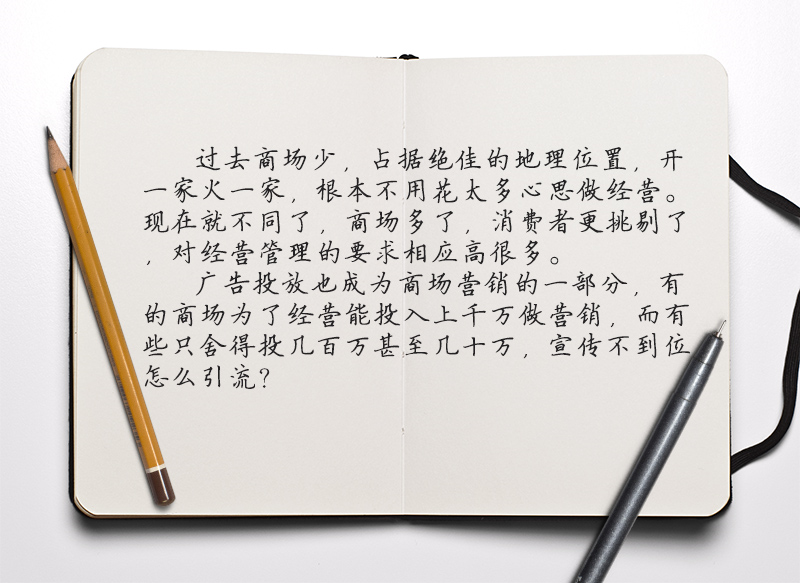 过去商场少，占据绝佳的地理位置，开
一家火一家，根本不用花太多心思做经营。
现在就不同了，商场多了，消费者更挑剔了
，对经营管理的要求相应高很多。
广告投放也成为商场营销的一部分，有
的商场为了经营能投入上千万做营销，而有
些只舍得投几百万甚至几十万，宣传不到位
怎么引流？